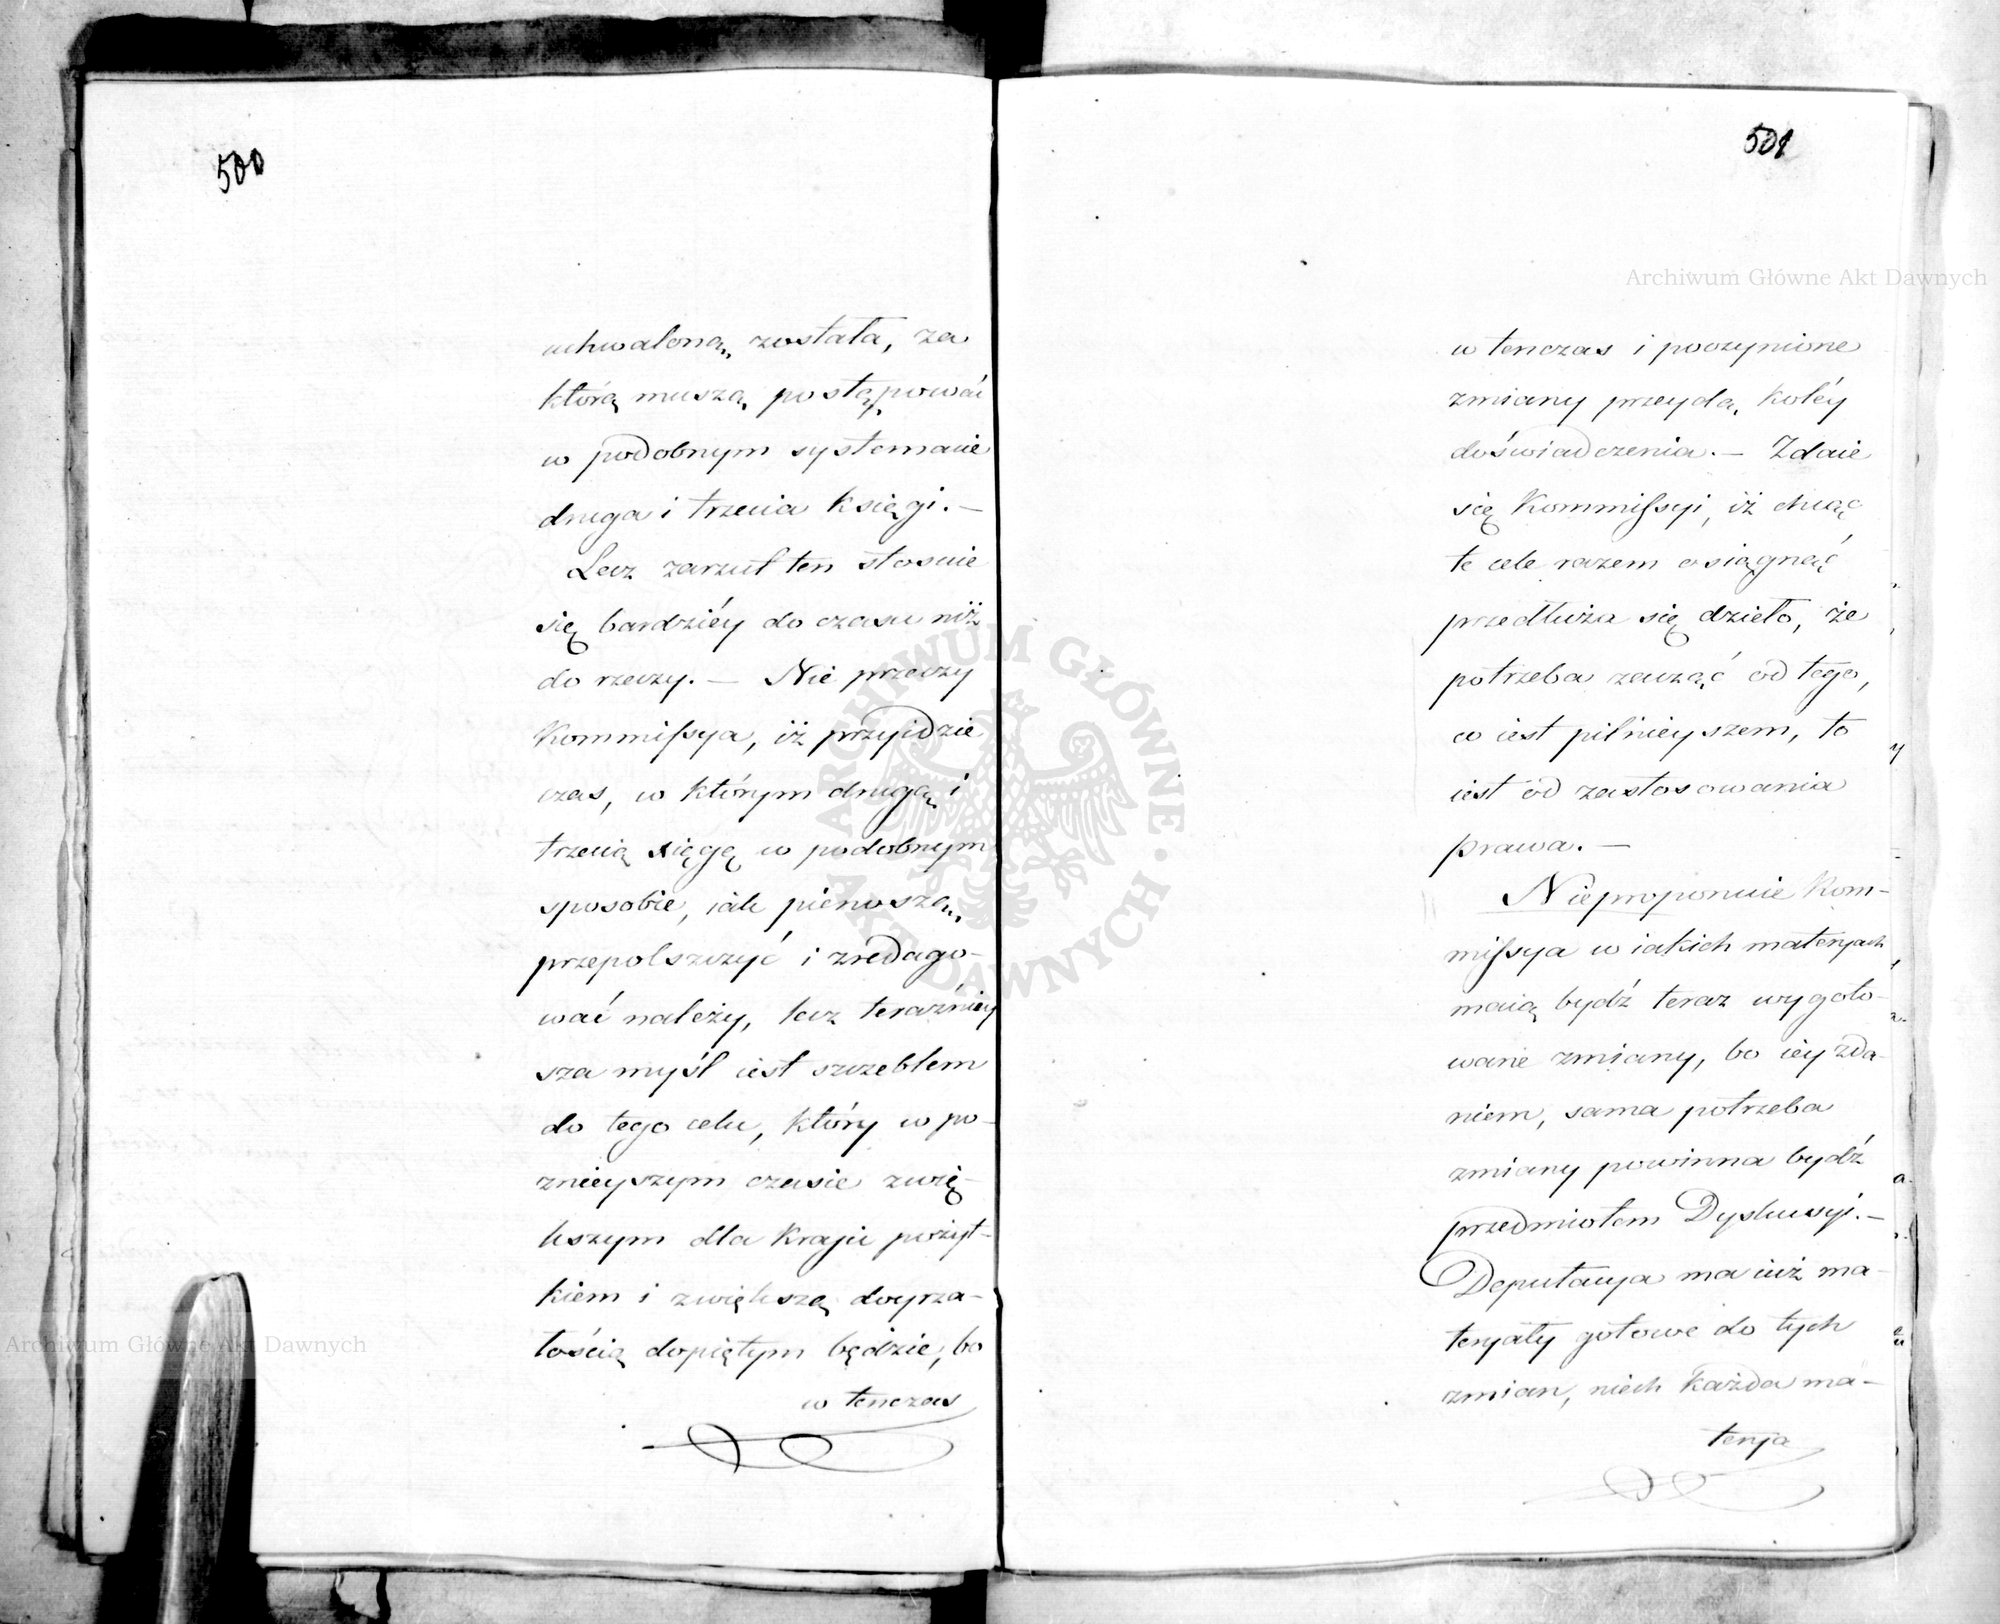 500
uchwaloną została, za
którą muszą postąpować
w podobnym systemacie
druga i trzecia Księgi. –
Lecz zarzut ten stosuie
się bardziéy do czasu niż
do rzeczy. – Nie przeczy
Kommissya, iż przyidzie
czas, w którym drugą i
trzecią xięgę w podobnym
sposobie, iak pierwszą,
przepolszczyć i zredago-
wać należy, lecz teraźniey
sza myśl iest szczeblem
do tego celu, który w po-
znieyszym czasie zwię-
kszym dla Kraju pożyt-
kiem i zwiększą doyrza-
łością dopiętym będzie, bo
w tenczas
501
w tenczas i poczynione
zmiany przeydą koléy
doświadczenia. – Zdaie
się Kommissyi, iż chcąc
te cele razem osiągnąć
przedłuża się dzieło, że
potrzeba zacząć od tego,
co iest pilnieyszem, to
iest od zastosowania
prawa. –
Nieproponuie Kom-
missya w iakich materyach
maią bydź teraz wygoto-
wane zmiany, bo iey zda-
niem, sama potrzeba
zmiany powinna bydź
przedmiotem Dyskusyi. –
Deputacya ma iuż ma-
teryały gotowe do tych
zmian, niech każda ma-
terja
Archiwum Główne Akt Dawnych
Archiwum Główne Akt Dawnych
ARCHIWUM GŁÓWNE · AKT DAWNYCH ·